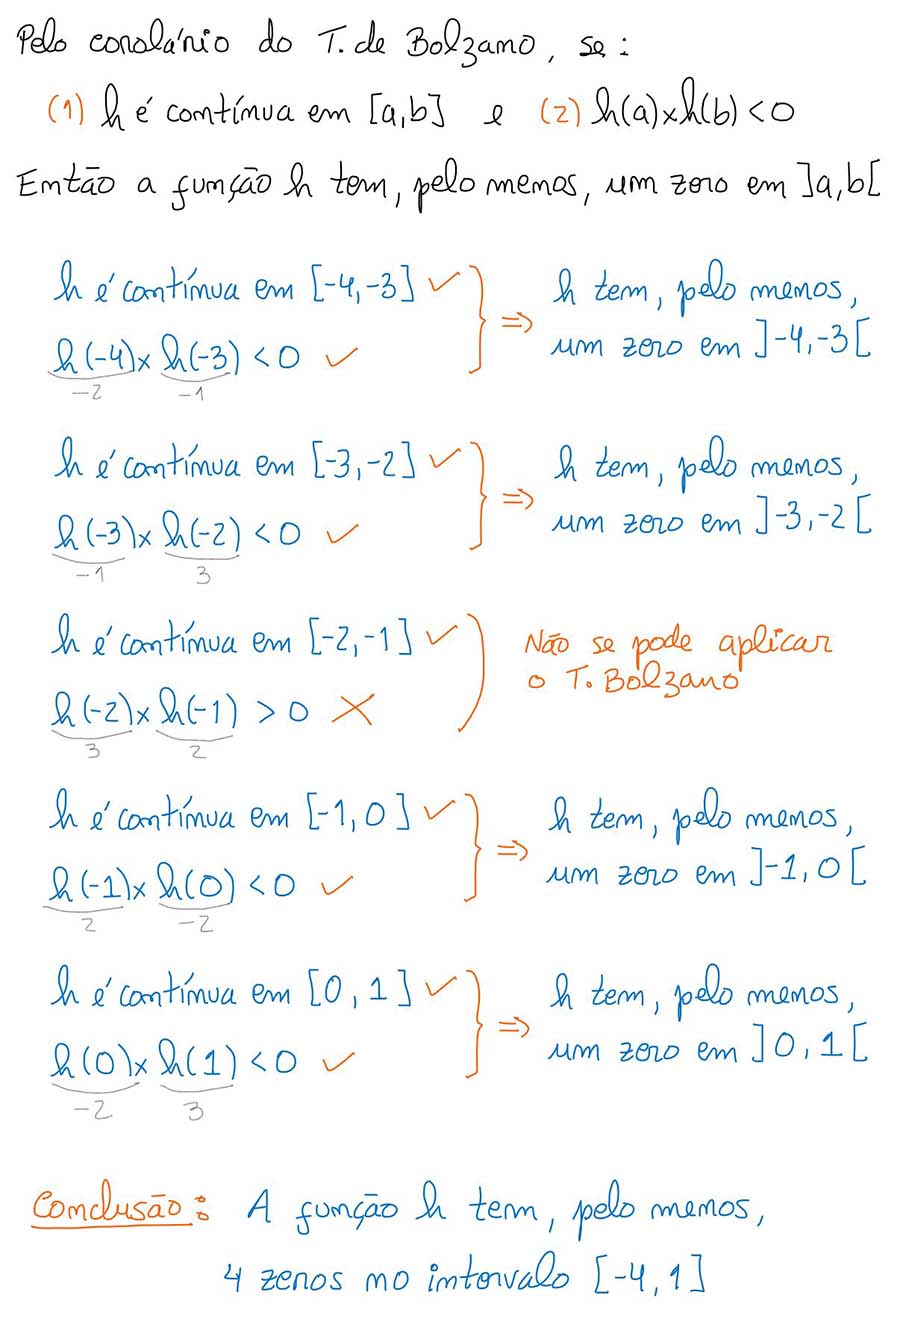 Pelo corolário do T. de Bolzano, se:
(1) h é contínua em [a,b] e (2) h(a)×h(b)<0
Então a função h tem, pelo menos, um zero em ]a,b[
h é contínua em [-4,-3] ✓ } ⇒ h tem, pelo menos,
um zero em ]-4,-3[
h(-4)× h(-3) <0 ✓
-2 -1
h é contínua em [-3,-2] ✓ } ⇒ h tem, pelo menos,
um zero em ]-3,-2[
h(-3)× h(-2) <0 ✓
-1 3
h é contínua em [-2,-1] ✓ ) Não se pode aplicar
o T. Bolzano
h(-2)× h(-1) > 0 ✗
3 2
h é contínua em [-1,0] ✓ } ⇒ h tem, pelo menos,
um zero em ]-1,0[
h(-1)× h(0) <0 ✓
2 -2
h é contínua em [0,1] ✓ } ⇒ h tem, pelo menos,
um zero em ]0,1[
h(0)× h(1) <0 ✓
-2 3
Conclusão: A função h tem, pelo menos,
4 zeros no intervalo [-4,1]